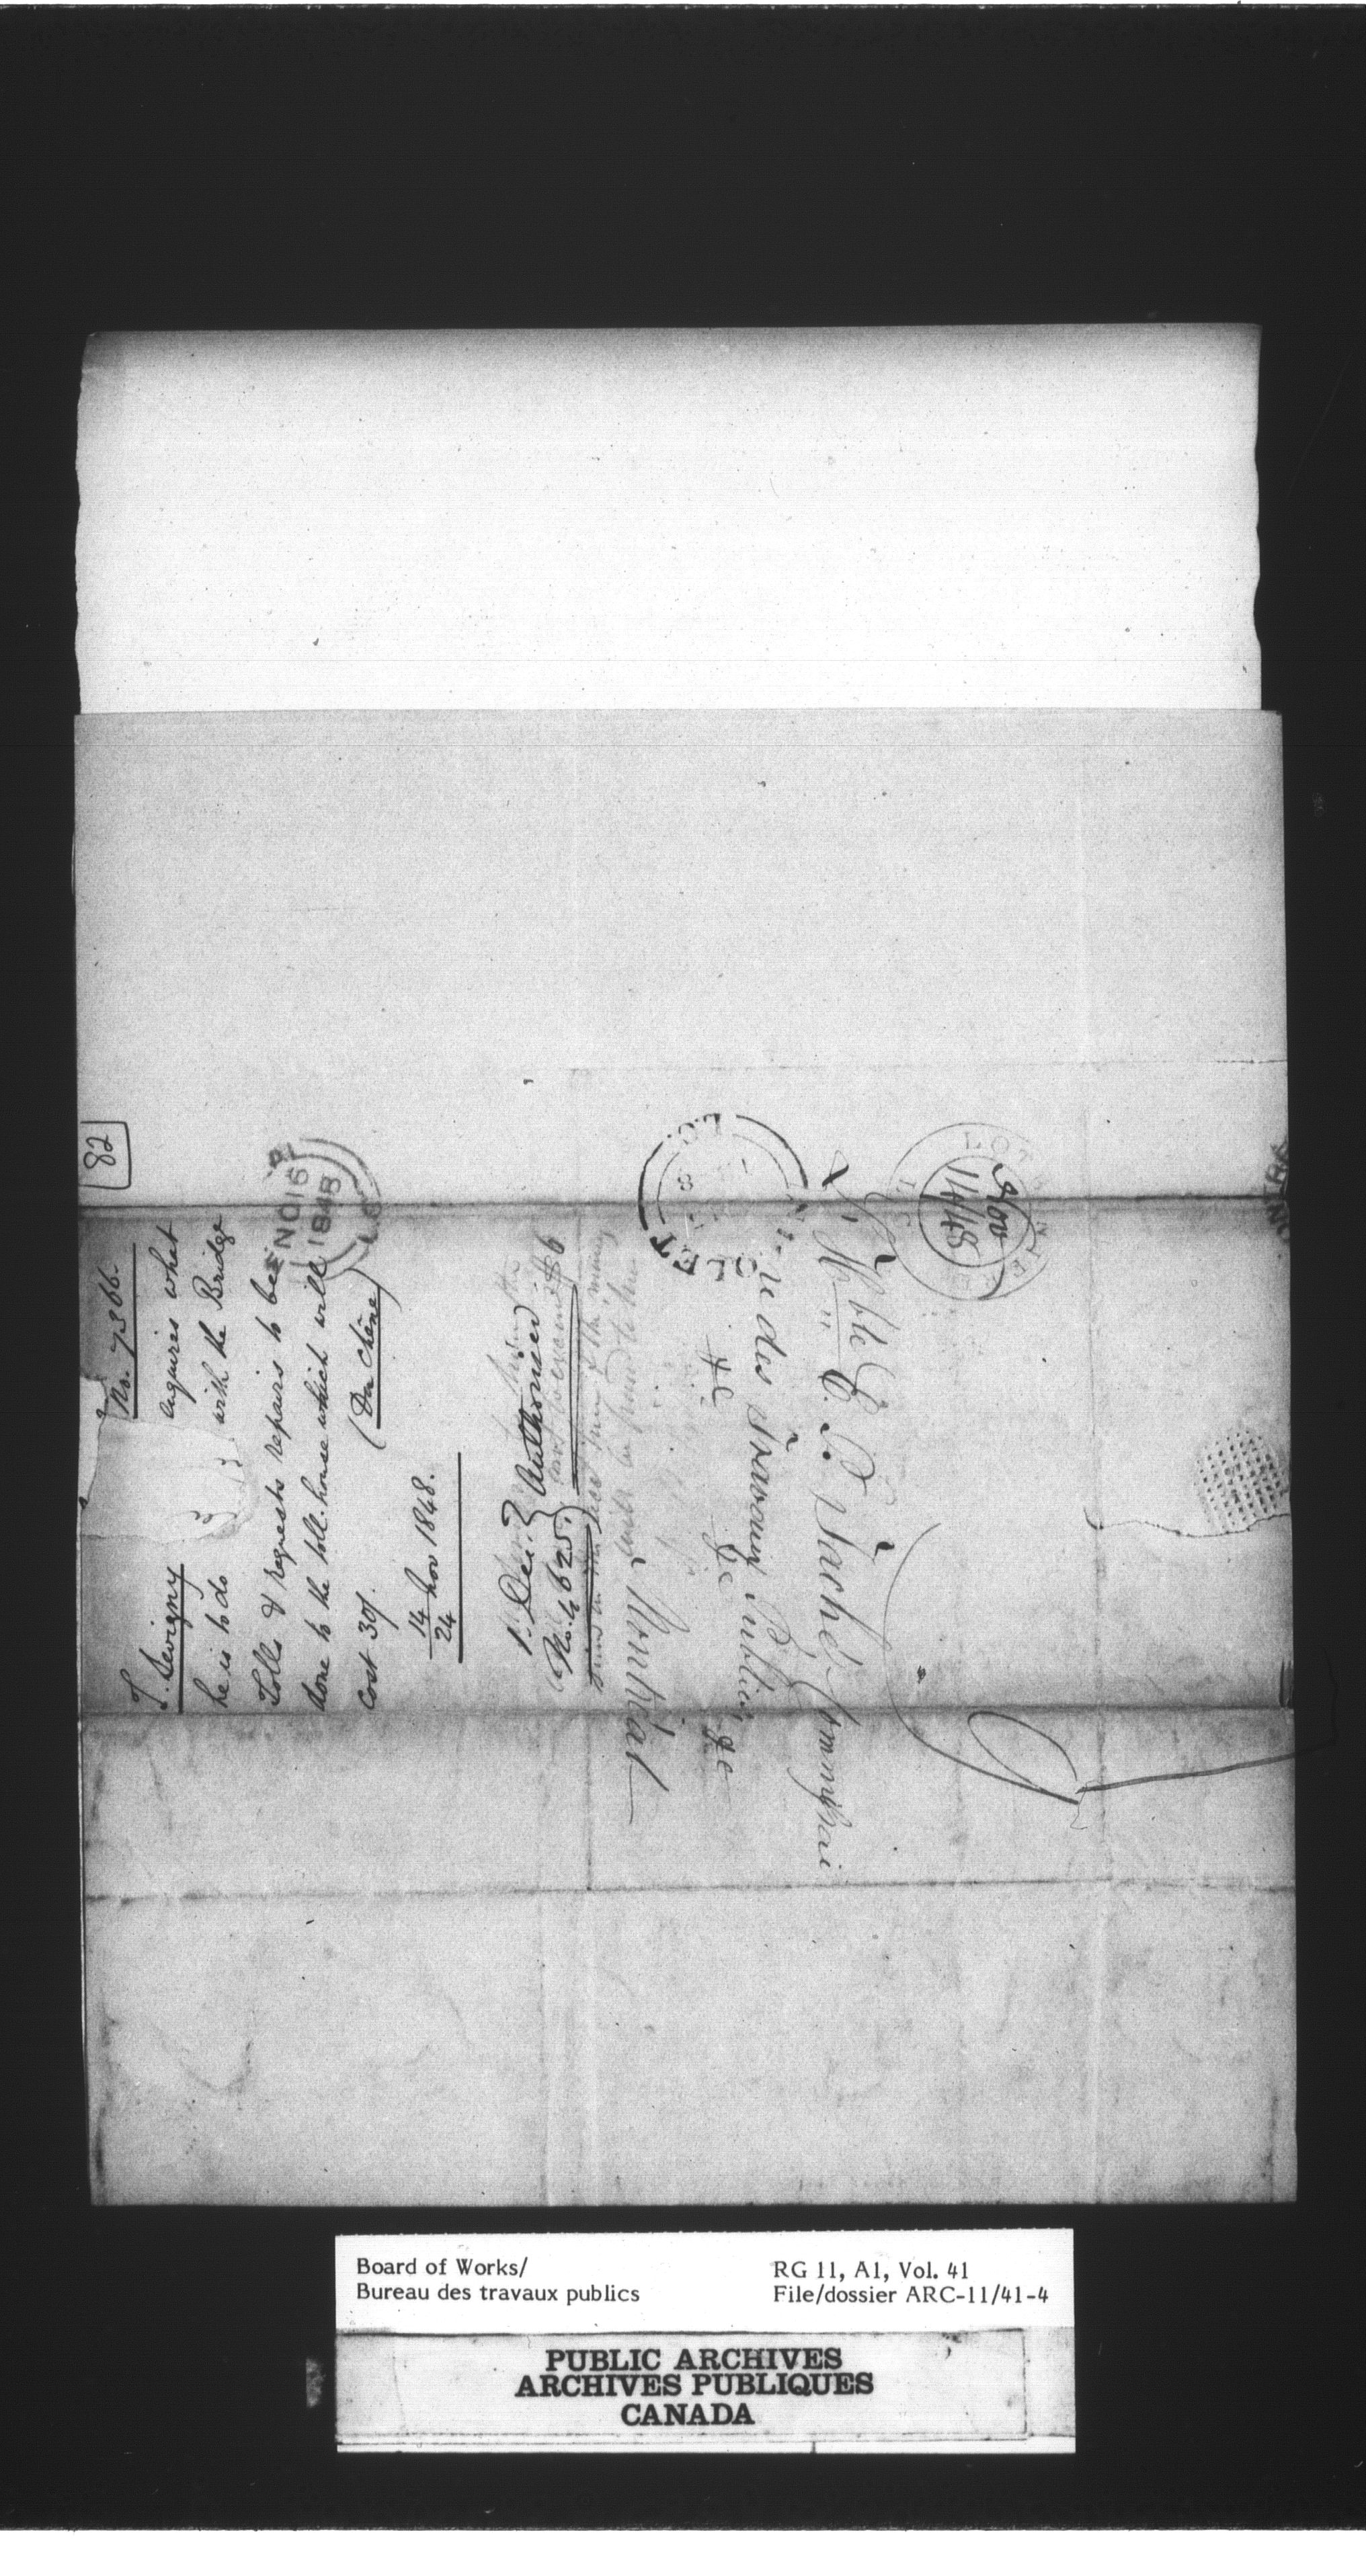 82
No. 7366.
T. Sevigny
enquires what
he is to do with the Bridge
Tolls & requests repairs to be
done to the toll-house which will
cost 30/. (Du Chêne)
14/24 Nov 1848.
1. Dec. } Authorised
No. 4625. }
NO 15
1848
L.C.
L'Hble E. P. Taché Commissai
des Travaux Publics
&c &c &c
Montréal
OLET
L.C.
LOTBINIERE
L C
Nov
14/48
Board of Works/
Bureau des travaux publics
RG 11, A1, Vol. 41
File/dossier ARC-11/41-4
PUBLIC ARCHIVES
ARCHIVES PUBLIQUES
CANADA